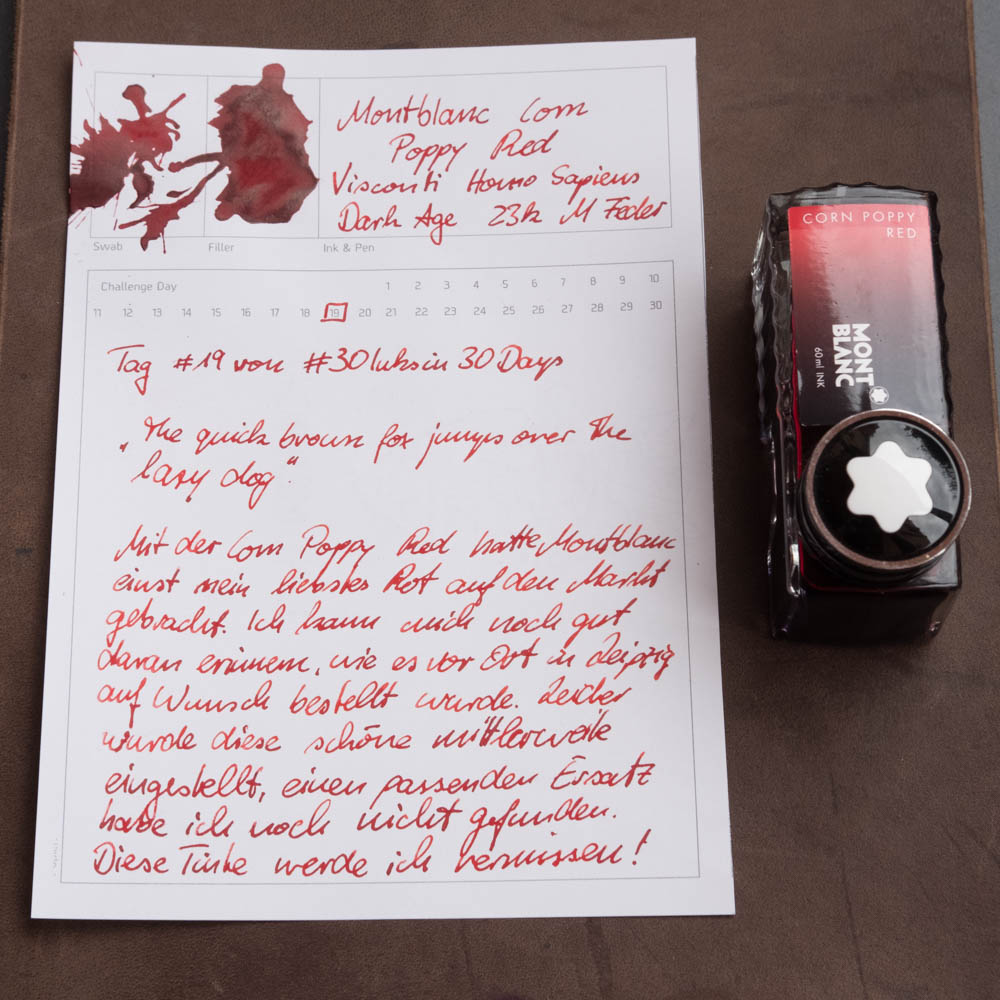 Montblanc Corn
Poppy Red
Visconti Homo Sapiens
Dark Age 23k M Feder
Swab Filler Ink & Pen
Challenge Day 1 2 3 4 5 6 7 8 9 10
11 12 13 14 15 16 17 18 19 20 21 22 23 24 25 26 27 28 29 30
Tag #19 von #30 Inks in 30 Days
„The quick brown fox jumps over the
lazy dog“.
Mit der Corn Poppy Red hatte Montblanc
einst mein liebstes Rot auf den Markt
gebracht. Ich kann mich noch gut
daran erinnern, wie es vor Ort in Leipzig
auf Wunsch bestellt wurde. Leider
wurde diese schöne mittlerweile
eingestellt, einen passenden Ersatz
habe ich noch nicht gefunden.
Diese Tinte werde ich vermissen!
CORN POPPY
RED
MONT
BLANC
60 ml INK